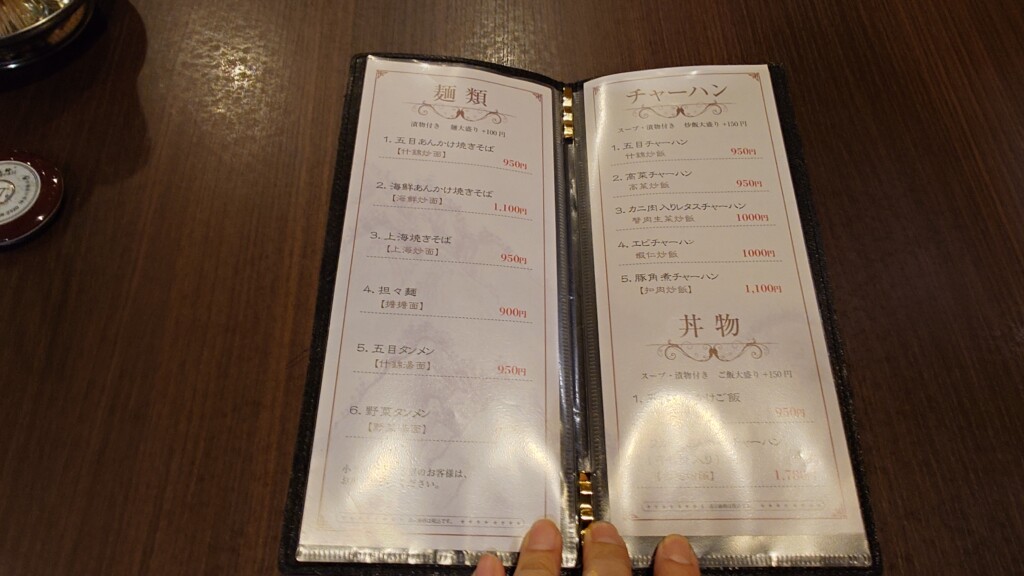 麺類
漬物付き 麺大盛り +100円
1. 五目あんかけ焼きそば
【什錦炒面】
950円
2. 海鮮あんかけ焼きそば
【海鮮炒面】
1,100円
3. 上海焼きそば
【上海炒面】
950円
4. 担々麺
900円
5. 五目タンメン
【什錦湯面】
950円
6. 野菜タンメン
のお客様は、
ください。
チャーハン
スープ・漬物付き 炒飯大盛り +150円
1. 五目チャーハン
什錦炒飯
950円
2. 高菜チャーハン
高菜炒飯
950円
3. カニ肉入りレタスチャーハン
蟹肉生菜炒飯
1000円
4. エビチャーハン
蝦仁炒飯
1000円
5. 豚角煮チャーハン
【扣肉炒飯】
1,100円
丼物
スープ・漬物付き ご飯大盛り +150円
1. けご飯
950円
チャーハン